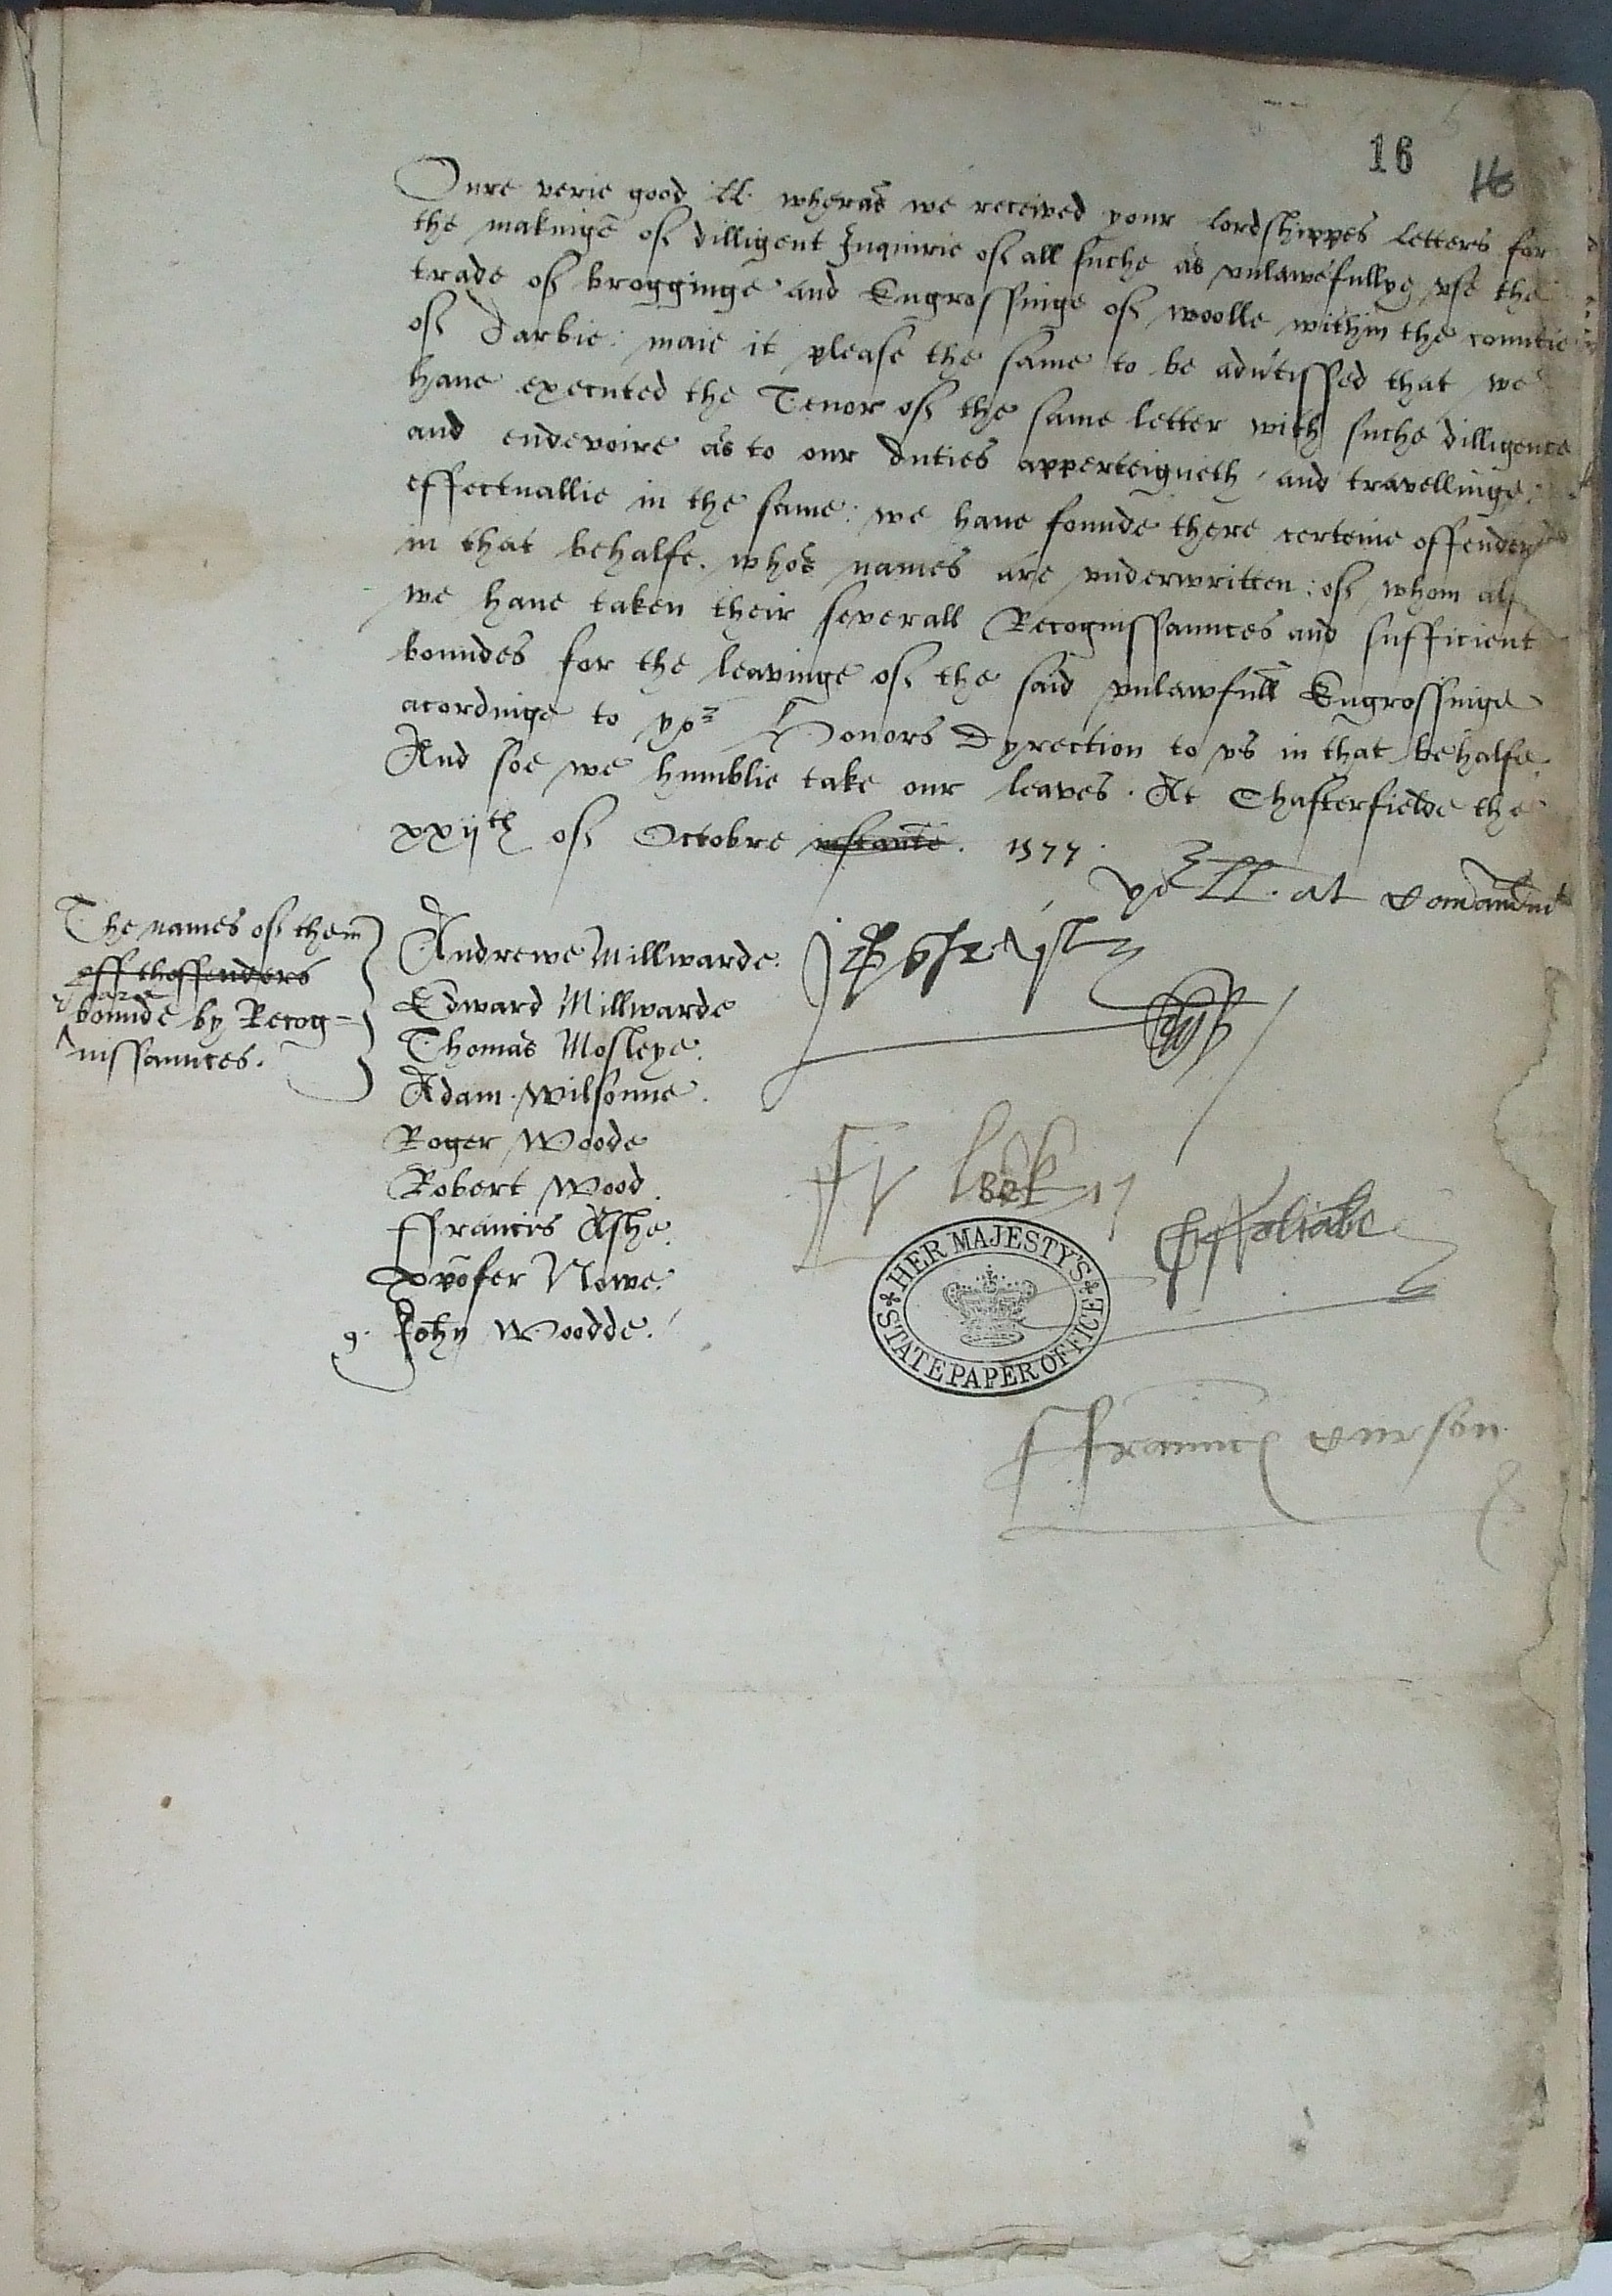 16
16
Oure verie good ll. wheras we received your lordshippes letters for
the makinge of dilligent Inquirie of all suche as vnlawefullye vse the
trade of brogginge and Engrossinge of woolle within the countie
of Darbie: maie it please the same to be adu'tissed that we
haue executed the Tenor of the same letter with suche dilligence
and endevoire as to our duties apperteigneth, and travellinge
effectuallie in the same: we haue founde there certeine offenders
in that behalfe. whos names are vnderwritten: of whom all
we haue taken their severall Recognissaunces and sufficient
boundes for the leavinge of the said vnlawfull Engrossinge
acordinge to yor Honors Dyrection to vs in that behalfe.
And soe we humblie take our leaves. At Chasterfielde the
xxijth of Octobre instante. 1577.
yor ll. at Comaundmt
The names of them
off thoffenders
that are
bounde by Recog=
nissaunces.
Andrewe Millwarde.
Edward Millwarde
Thomas Mosleye.
Adam Wilsonne.
Roger Woode
Robert Wood.
Ffrancis Ashe.
Xpofer Nowe.
9. John Woodde.
Ffrauncis Curson
HER MAJESTY'S
STATE PAPER OFFICE